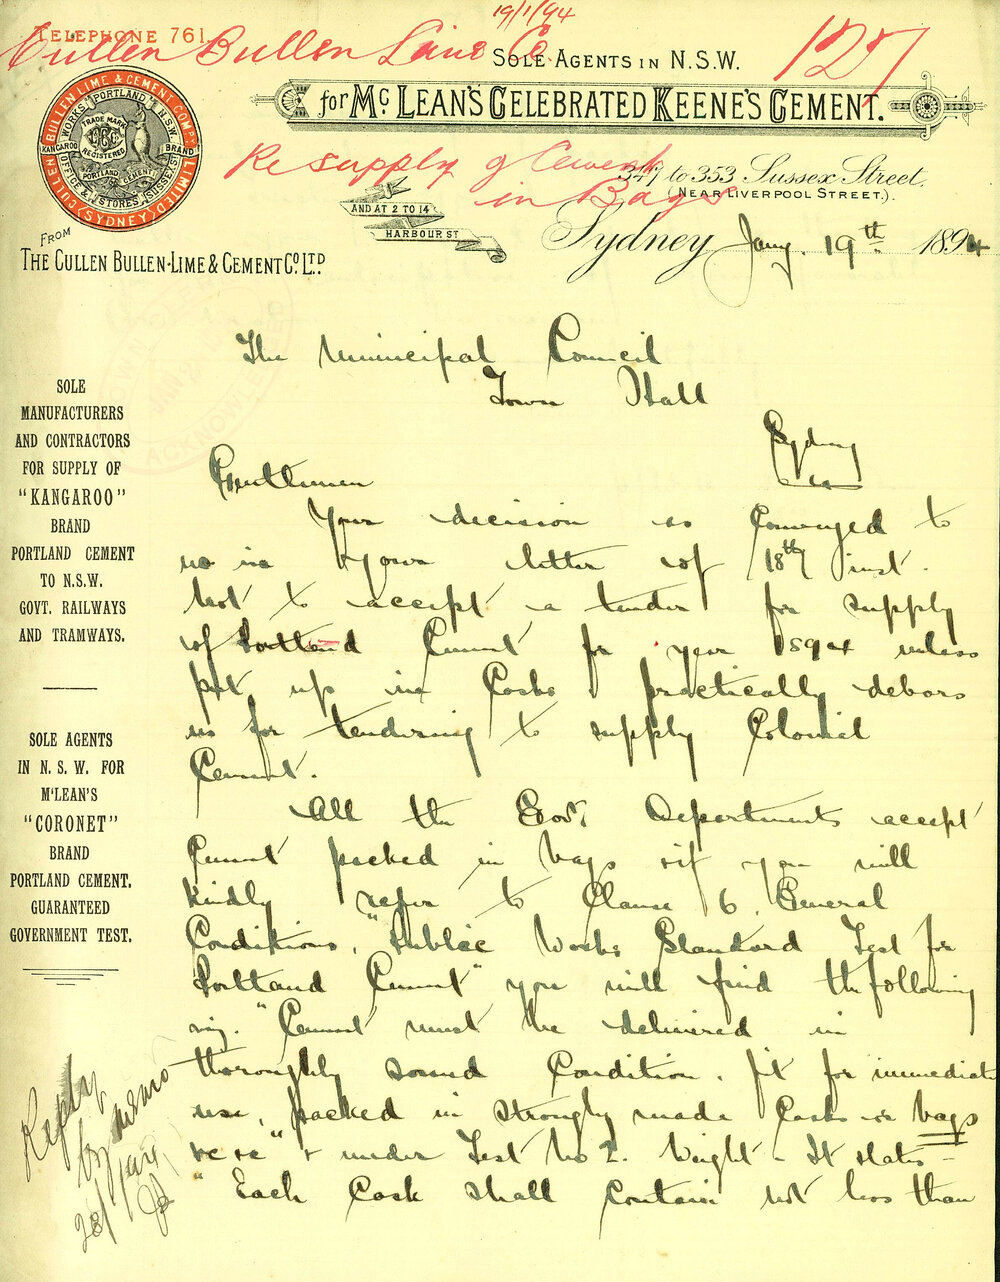 19/1/94
TELEPHONE 761.
Cullen Bullen Lime Co.
127
SOLE AGENTS IN N.S.W.
for McLEAN'S CELEBRATED KEENE'S CEMENT.
CULLEN BULLEN LIME & CEMENT COMPY LIMITED (SYDNEY)
WORKS: PORTLAND N.S.W.
KANGAROO BRAND
TRADE MARK
REGISTERED
PORTLAND CEMENT
OFFICE & STORES SUSSEX ST
Re supply of Cement
in Bags
347 to 353 Sussex Street,
(NEAR LIVERPOOL STREET.)
AND AT 2 TO 14
HARBOUR ST
Sydney Jany. 19th 1894
FROM
THE CULLEN BULLEN LIME & CEMENT CO. LTD
TOWN
ACKNOWLEDGED
The Municipal Council
Town Hall
Sydney
SOLE
MANUFACTURERS
AND CONTRACTORS
FOR SUPPLY OF
"KANGAROO"
BRAND
PORTLAND CEMENT
TO N.S.W.
GOVT. RAILWAYS
AND TRAMWAYS.
SOLE AGENTS
IN N. S. W. FOR
M'LEAN'S
"CORONET"
BRAND
PORTLAND CEMENT.
GUARANTEED
GOVERNMENT TEST.
Gentlemen
Your decision as conveyed to
us in yours letter of 18th inst.
not to accept a tender for supply
of Portland Cement for year 1894 unless
put up in Casks practically debars
us for tendering to supply Colonial
Cement.
All the Govt Departments accept
Cement packed in bags if you will
kindly refer to Clause 6 General
Conditions, "Public Works Standard Test for
Portland Cement" you will find the following
viz. "Cement must be delivered in
thoroughly sound Condition, fit for immediate
use, packed in strongly made Casks or bags
&c &c" & under Test No 2. Weight - It states -
"Each Cask shall contain not less than
Reply
by memo
28/Jan